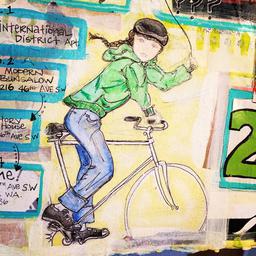 1
INTERNATIONAL
DISTRICT Apt
MODERN
BUNGALOW
216 46TH AVE SW
TORY
HOUSE
TH AVE S.W
ME!
TH AVE S.W
WA.
36
2